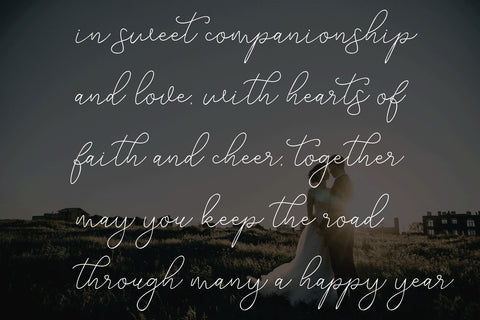 in sweet companionship
and love, with hearts of
faith and cheer, together
may you keep the road
through many a happy year